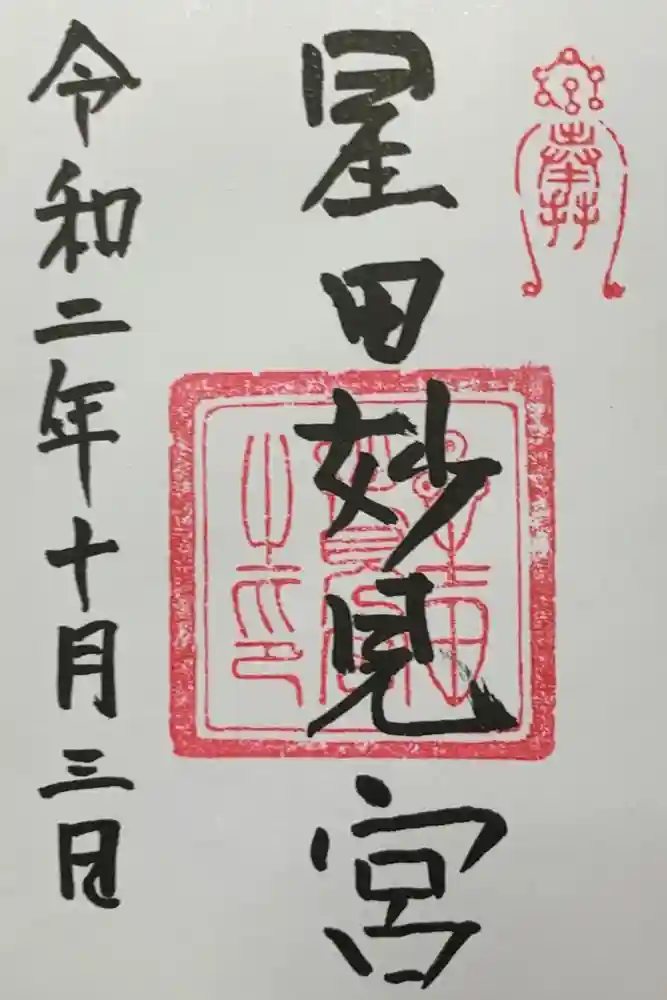 奉拝
星田妙見宮
令和二年十月三日